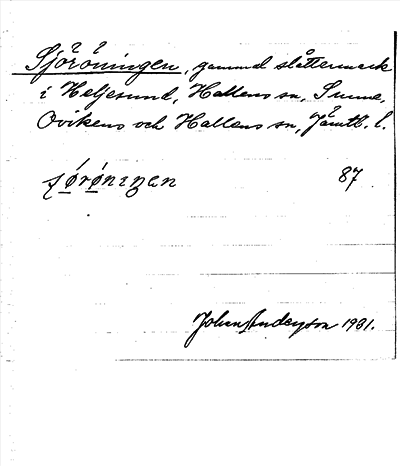 Sjöröningen, gammal slåttermark
i Heljesund, Hallens sn, Sunne,
Ovikens och Hallens sn, Jämtl. l.
87
Johan Anderson 1931.